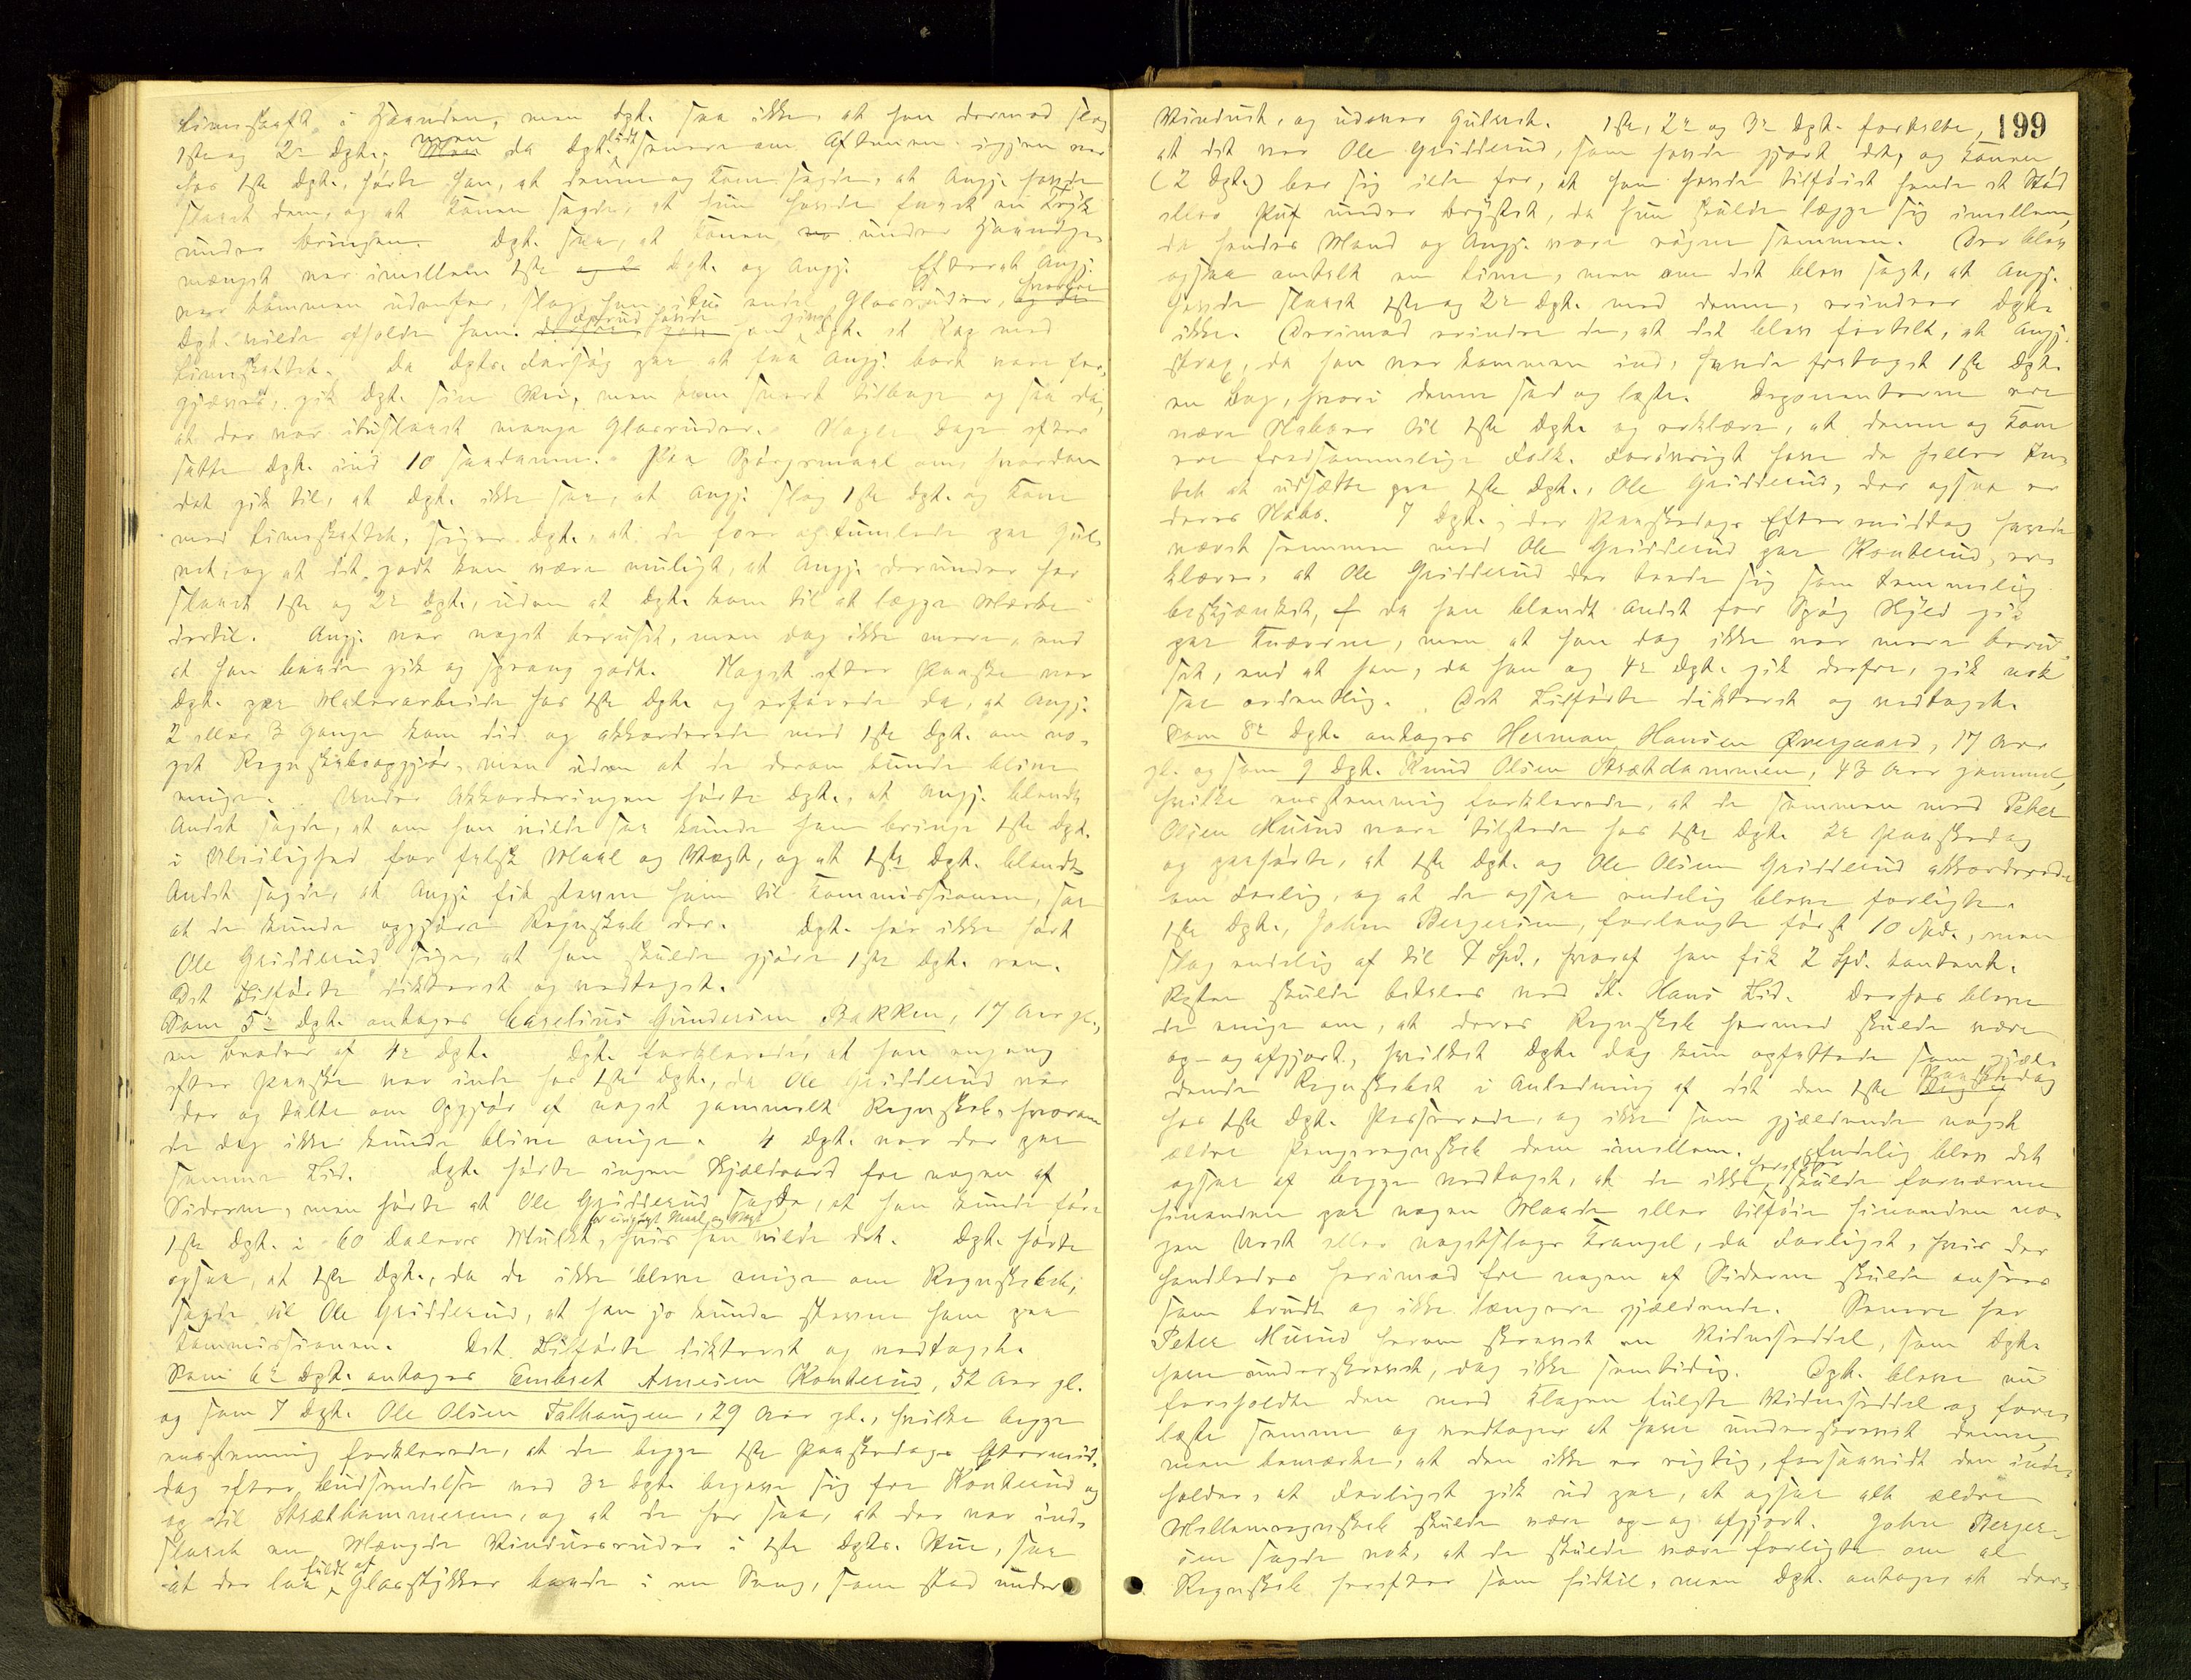 Limeskaft i Haanden, men Dgt. saa ikke, at han dermed slog
1ste og 2de Dgt.; men da Dgt. lidt senere om Aftenen igjen var
hos 1ste Dgt., hørte han, at denne og Kone sagde, at Angj. havde
slaaet dem, og at Konen sagde, at hun havde faaet en Tryk
under Bringen. Dgt. saa, at Konen under Haandge-
mænget var imellem 1ste Dgt. og Angj. Efterat Angj.
var kommen udenfor, slog han itu endel Glasruder, hvorfor
Dgt. vilde afholde ham. havde han givet Dgt. et Rap med
Limeskaftet. Da Dgts. Forsøg paa at faa Angj. bort vare for-
gjæves, gik Dgt. sin Vei, men kom snart tilbage og saa da,
at der var ituslaaet mange Glasruder. Nogle Dage efter
satte Dgt. ind 10 saadanne. Paa Spørgsmaal om, hvordan
det gik til, at Dgt. ikke saa, at Angj. slog 1ste Dgt. og Kone
med Limeskaftet, siger Dgt., at de foer og tumlede paa Gul-
vet, og at det godt kan være muligt, at Angj. derunder har
slaaet 1ste og 2de Dgt., uden at Dgt. kom til at lægge Mærke
dertil. Angj. var noget beruset, men dog ikke mere, end
at han baade gik og sprang godt. Noget efter Paaske var
Dgt. paa Malerarbeide hos 1ste Dgt. og erfarede da, at Angj.
2 eller 3 Gange kom did og akkorderede med 1ste Dgt. om no-
get Regnskabsopgjør, men uden at de derom kunde blive
enige. Under Akkorderingen hørte Dgt., at Angj. blandt
Andet sagde, at om han vilde saa kunde han bringe 1ste Dgt.
i Uleilighed for falsk Maal og Vægt, og at 1ste Dgt. blandt
Andet sagde, at Angj. fik stevne ham til Kommissionen, saa
at de kunde opgjøre Regnskab der. Dgt. har ikke hørt
Ole Gridderud sige, at han skulde gjøre 1ste Dgt. ren.
Det Tilførte dikteret og vedtaget.
Som 5te Dgt. antages Carelius Gundersen Bakken, 17 Aar gl.,
en Broder af 4de Dgt. Dgt. forklarede, at han engang
efter Paaske var inde hos 1ste Dgt., da Ole Gridderud var
der og talte om Opgjør af noget gammelt Regnskab, hvorom
de dog ikke kunde blive enige. 4 Dgt. var der paa
samme Tid. Dgt. hørte ingen Skjældsord fra nogen af
Siderne, men hørte at Ole Gridderud sagde, at han kunde føre
1ste Dgt. i 60 Dalers Mulkt for urigtigt Maal og Vægt, hvis han vilde det. Dgt. hørte
ogsaa, at 1ste Dgt., da de ikke bleve enige om Regnskabet,
sagde til Ole Gridderud, at han jo kunde stevne ham paa
Kommissionen. Det Tilførte dikteret og vedtaget.
Som 6te Dgt. antages Embret Arnesen Konterud, 52 Aar gl.
og som 7 Dgt. Ole Olsen Falhaugen, 29 Aar gl., hvilke begge
enstemmig forklarede, at de begge 1ste Paaskedags Eftermid-
dag efter Budsendelse ved 3de Dgt. begave sig fra Konterud og
og til Strætkammeren, og at de her saa, at der var ind-
slaaet en Mængde Vinduesruder i 1ste Dgts. Stue, saa
at der laa fuldt af Glasstykker baade i en Seng, som stod under
199
Vinduet, og udover Gulvet. 1ste, 2de og 3de Dgt. fortalte,
at det var Ole Gridderud, som havde gjort det, og Konen
(2 Dgt.) bar sig ilde for, at han havde tilføiet hende et Stød
eller Puf under Brystet, da hun skulde lægge sig imellem,
da hendes Mand og Angj. vare røgne sammen. Der blev
ogsaa omtalt en Lime, men om det blev sagt, at Angj.
havde slaaet 1ste og 2de Dgt. med denne, erindrer Dgt.
ikke. Derimod erindre de, at det blev fortalt, at Angj.
strax, da han var kommen ind, havde frataget 1ste Dgt.
en Bog, hvori denne sad og læste. Deponenterne ere
nære Naboer til 1ste Dgt. og erklære, at denne og Kone
ere fredsommelige Folk. Forøvrigt have de heller In-
tet at udsætte paa 1ste Dgt., Ole Gridderud, der ogsaa er
deres Nabo. 7 Dgt., der Paaskedags Eftermiddag havde
været sammen med Ole Gridderud paa Konterud, er-
klærer, at Ole Gridderud der teede sig som temmelig
beskjænket, da han blandt andet for Spøg Skyld gik
paa Knæerne, men at han dog ikke var mere beru-
set, end at han, da han og 4de Dgt. gik derfra, gik nok
saa ordentlig. Det Tilførte dikteret og vedtaget.
Som 8de Dgt. antages Herman Hansen Øvergaard, 17 Aar
gl. og som 9 Dgt. Knud Olsen Strætdammen, 43 Aar gammel,
hvilke enstemmig forklarede, at de sammen med Peter
Olsen Musud vare tilstede hos 1ste Dgt. 2de Paaskedag
og paahørte, at 1ste Dgt. og Ole Olsen Gridderud akkorderede
om Forlig, og at de ogsaa endelig bleve forligte.
1ste Dgt., Johan Bergersen, forlangte først 10 Spd., men
slog endelig af til 7 Spd., hvoraf han fik 2 Spd. kontant.
Resten skulde betales ved St. Hans Tid. Derhos bleve
de enige om, at deres Regnskab hermed skulde være
op- og afgjort, hvilket Dgt. dog kun opfattede som gjæl-
dende Regnskabet i Anledning af det den 1ste Paaskedag
hos 1ste Dgt. Passerede, og ikke som gjældende noget
ældre Pengeregnskab dem imellem. Endelig blev det
ogsaa af begge vedtaget, at de ikke herefter skulde fornærme
hinanden paa nogen Maade eller tilføie hinanden no-
gen Uret eller nogetslags Krangel, da Forliget, hvis der
handledes herimod fra nogen af Siderne skulde ansees
som brudt og ikke længere gjældende. Senere har
Peter Musud herom skrevet en Vidneseddel, som Dgt.
have underskrevet, dog ikke samtidig. Dgt. bleve nu
foreholdte den med Klagen fulgte Vidneseddel og fore-
læste samme og vedtager at have underskrevet denne,
men bemærke, at den ikke er rigtig, forsaavidt den inde-
holder, at Forliget gik ud paa, at ogsaa alt ældre
Mellemregnskab skulde være op- og afgjort. Johan Berger-
sen sagde nok, at de skulde være forligte om al
Regnskab herefter som hidtil, men Dgt. antager at der-